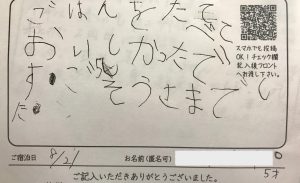 ごはんをたべて
おいしかったで
すごちそうさまでし
た
スマホでも投稿
OK！チェック欄
記入後フロント
へお渡し下さい。
ご宿泊日 8/21 お名前(匿名可) 5才
ご記入いただきありがとうございました。